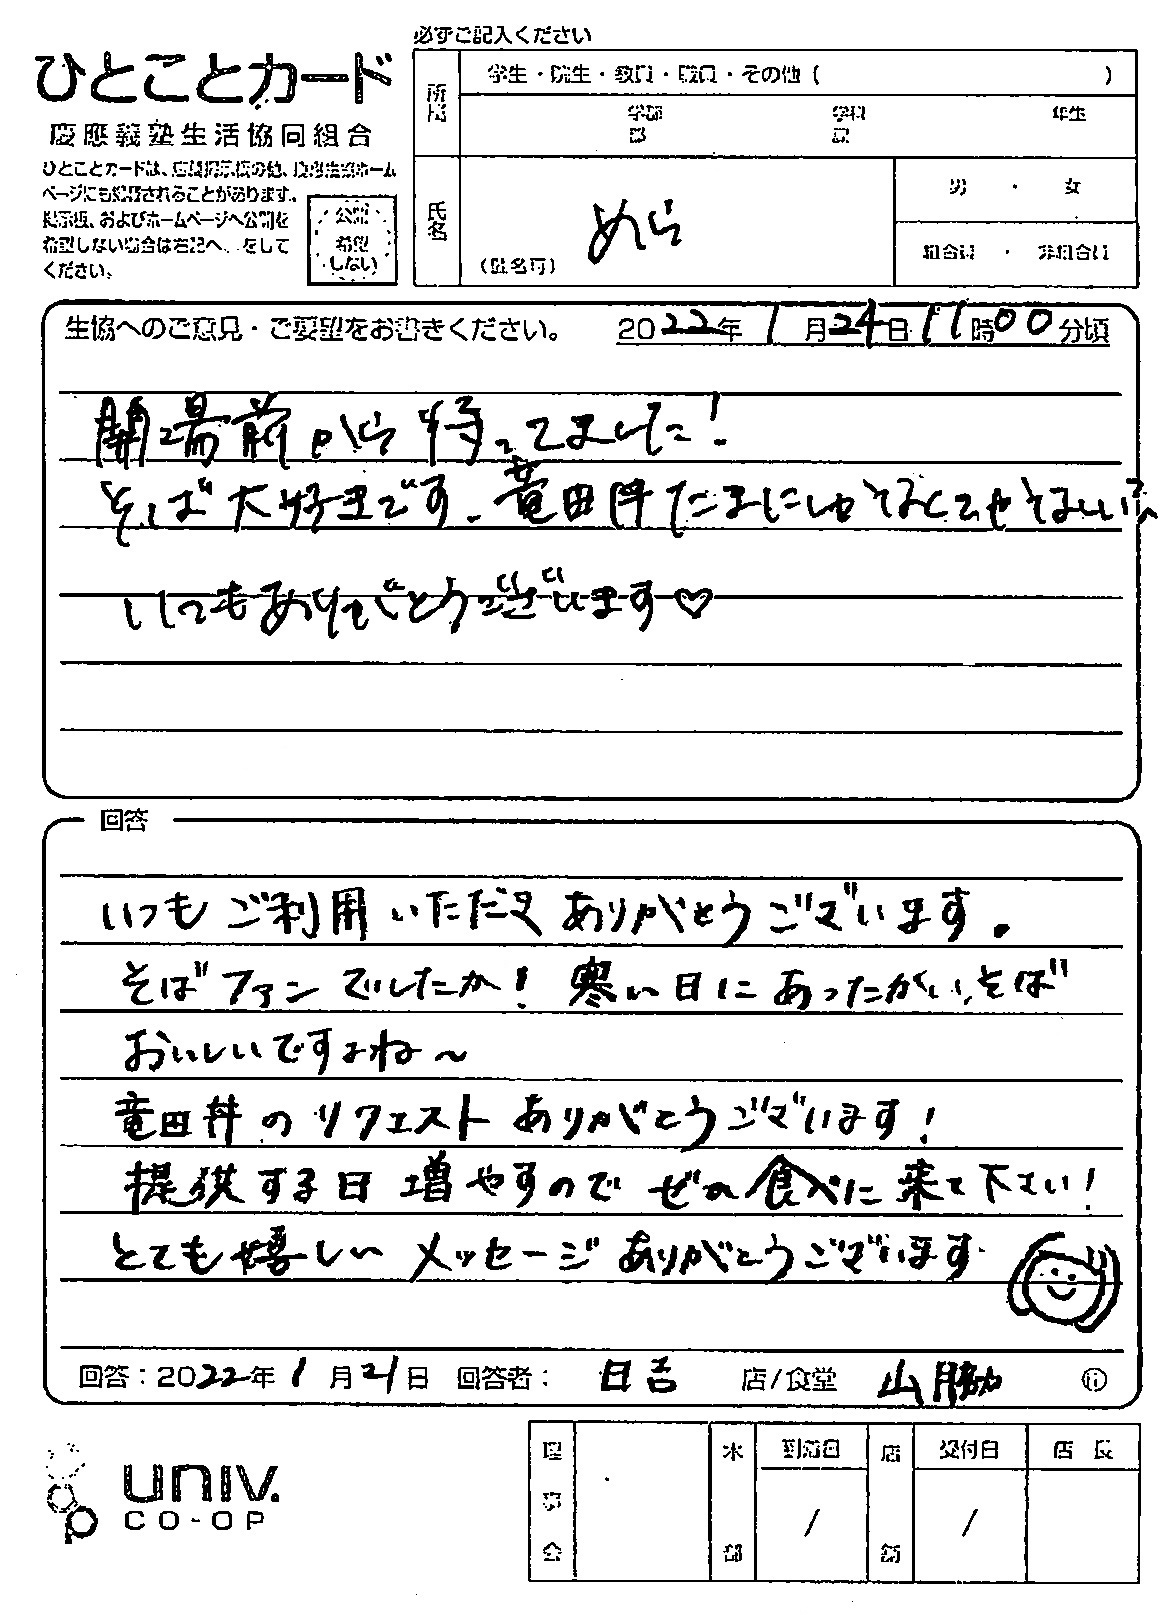 必ずご記入ください
ひとことカード
慶應義塾生活協同組合
ひとことカードは、店頭掲示板の他、慶應生協ホーム
ページにも掲載されることがあります。
掲示板、およびホームページへ公開を
希望しない場合は右記へ、をして
ください。
公開
希望
しない
所属
学生・院生・教員・職員・その他(
)
学部
学科
年生
氏名
めら
(匿名可)
男 ・ 女
組合員 ・ 非組合員
生協へのご意見・ご要望をお書きください。
2022年 1月24日 11時00分頃
開場前から待ってました!
そば大好きです。竜田丼たまに
いつもありがとうございます♡
回答
いつもご利用いただきありがとうございます。
そばファンでしたか! 寒い日にあったかいそば
おいしいですよね~
竜田丼のリクエストありがとうございます!
提供する日増やすのでぜひ食べに来て下さい!
とても嬉しいメッセージありがとうございます
回答:2022年1月21日 回答者: 日吉 店/食堂 山脇 印
理事会
本部
到着日
/
店
受付日
/
店長
univ.
CO-OP